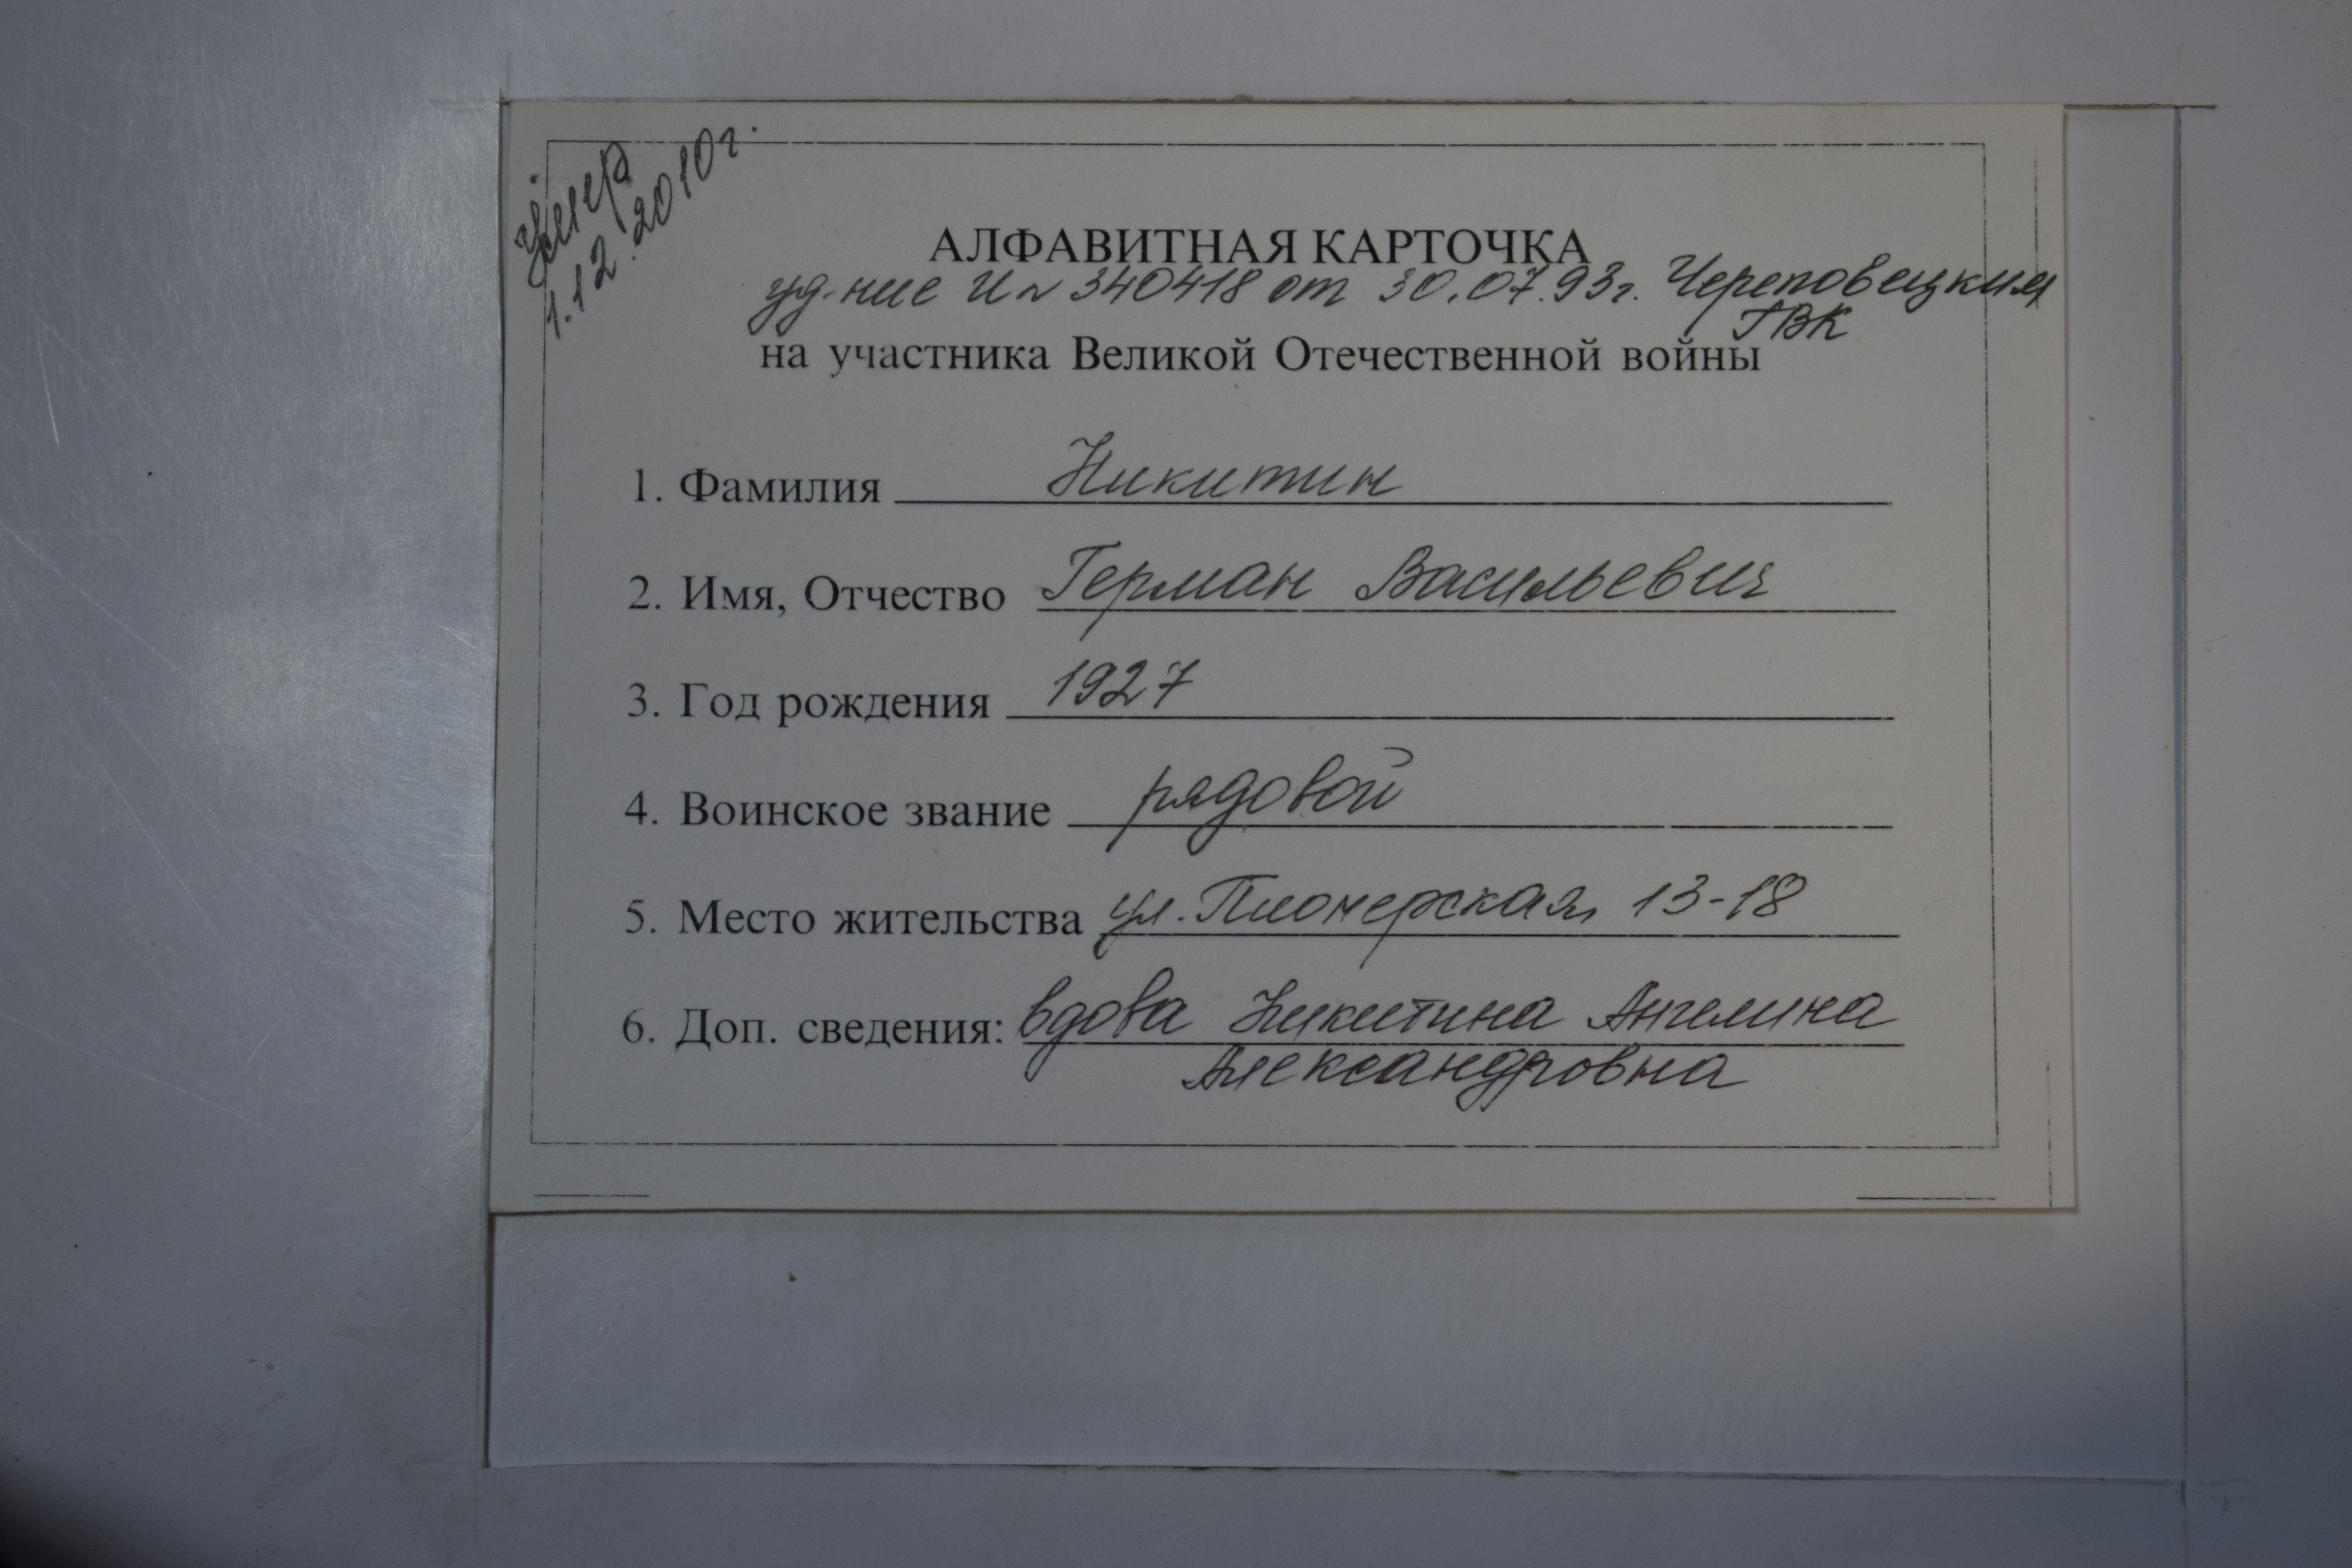 умер
1.12.2010г.
АЛФАВИТНАЯ КАРТОЧКА
уд-ние И № 340418 от 30.07.93г. Череповецким
ГВК
на участника Великой Отечественной войны
1. Фамилия Никитин
2. Имя, Отчество Герман Васильевич
3. Год рождения 1927
4. Воинское звание рядовой
5. Место жительства ул. Пионерская 13-18
6. Доп. сведения: вдова Никитина Ангелина
Александровна